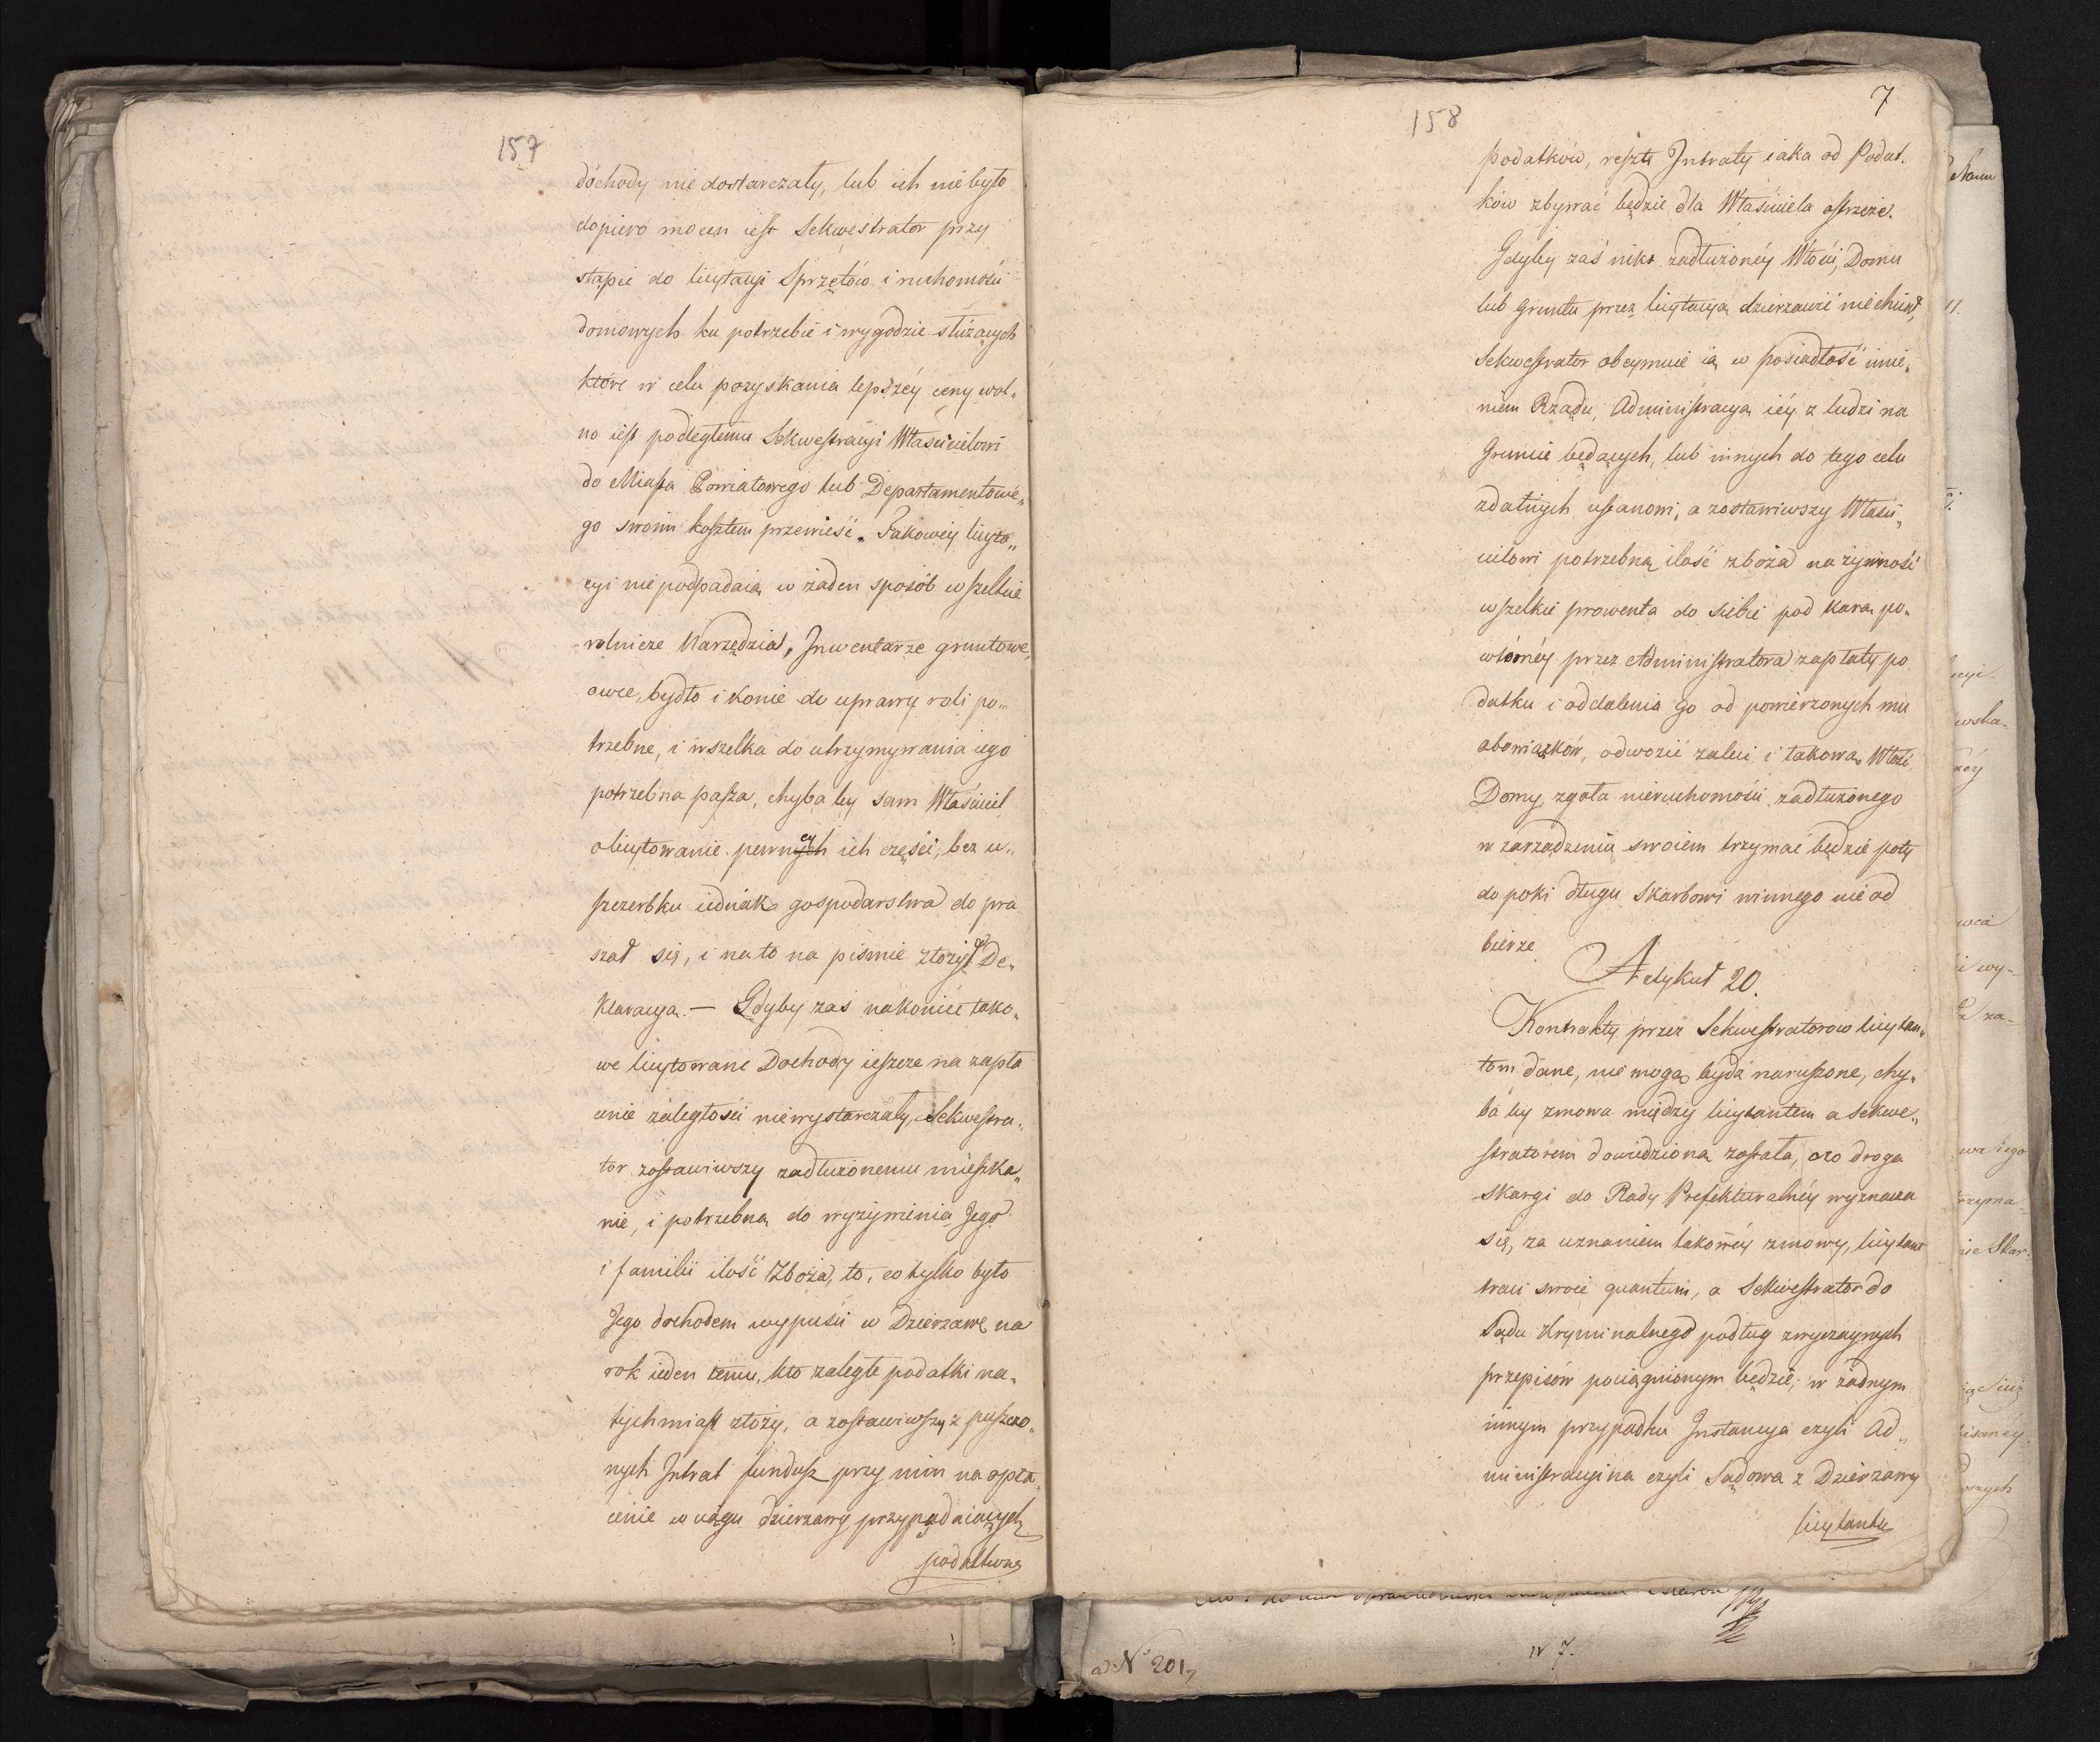 157
dochody nie dostarczały, lub ich nie było
dopiero mocen iest Sekwestrator przy
stąpić do licytacyi Sprzętów i ruchomości
domowych ku potrzebie i wygodzie służących
które w celu pozyskania lepszéy ceny wol„
no iest podległemu Sekwestracyi Właścicielowi
do Miasta Powiatowego lub Departamentowe„
go swoim kosztem przewieść. Takowéy licyta„
cyi nie podpadaią w żaden sposób wszelkie
rolnicze Narzędzia, Inwentarze gruntowe,
owce, bydło i konie do uprawy roli po„
trzebne, i wszelka do utrzymywania iego
potrzebna pasza, chyba by sam Właściciel
o licytowanie pewnéy ich części, bez u„
szczerbku iednak gospodarstwa do pra
szał się, i na to na piśmie złożył De„
klaracyą. — Gdyby zaś nakoniec tako„
we licytowane Dochody ieszcze na zapła
cenie zaległości nie wystarczały, Sekwestra„
tor zostawiwszy zadłużonemu mieszka„
nie, i potrzebną do wyżywienia Jego
i familii ilość Zboża, to, co tylko było
Jego dochodem wypuści w Dzierzawę na
rok ieden temu, kto zaległe podatki na„
tychmiast złoży, a zostawiwszy z puszczo„
nych Intrat fundusz przy nim na opła„
cenie w ciągu dzierzawy przypadaiących
podatków
7
158
podatków, resztę Intraty iaka od Podat„
ków zbywać będzie dla Właściciela ostrzeże.
Gdyby zaś nikt zadłużonéy Włości, Domu
lub Gruntu przez licytacyą dzierzawić nie chciał,
Sekwestrator obeymuie ią w posiadłość imie„
niem Rządu, Administracyą iéy z ludzi na
Gruncie będących, lub innych do tego celu
zdatnych ustanowi, a zostawiwszy Właści„
cielowi potrzebną ilość zboża na żywność
wszelkie prowenta do siebie pod karą po„
wtórnéy przez Administratora zapłaty po
datku i oddalenia go od powierzonych mu
obowiązków, odwozić zaleci i takową Włość
Domy, zgoła nieruchomości zadłużonego
w zarządzeniu swoiem trzymać będzie póty
do póki długu Skarbowi winnego nie od
bierze.
Artykuł 20.
Kontrakty przez Sekwestratorow licytan„
tom dane, nie mogą bydź naruszone, chy„
ba by zmowa między licytantem a Sekwe„
stratorem dowiedziona została, co drogą
skargi do Rady Prefekturalnéy wyznacza
się, za uznaniem takowéy zmowy, licytant
traci swoie quantum, a Sekwestrator do
Sądu Kryminalnego podług zwyczaynych
przepisów pociągnionym będzie; w żadnym
innym przypadku Instancya czyli Ad„
ministracyina czyli Sądowa z Dzierzawy
licytanta
ad N 201,
N 7.